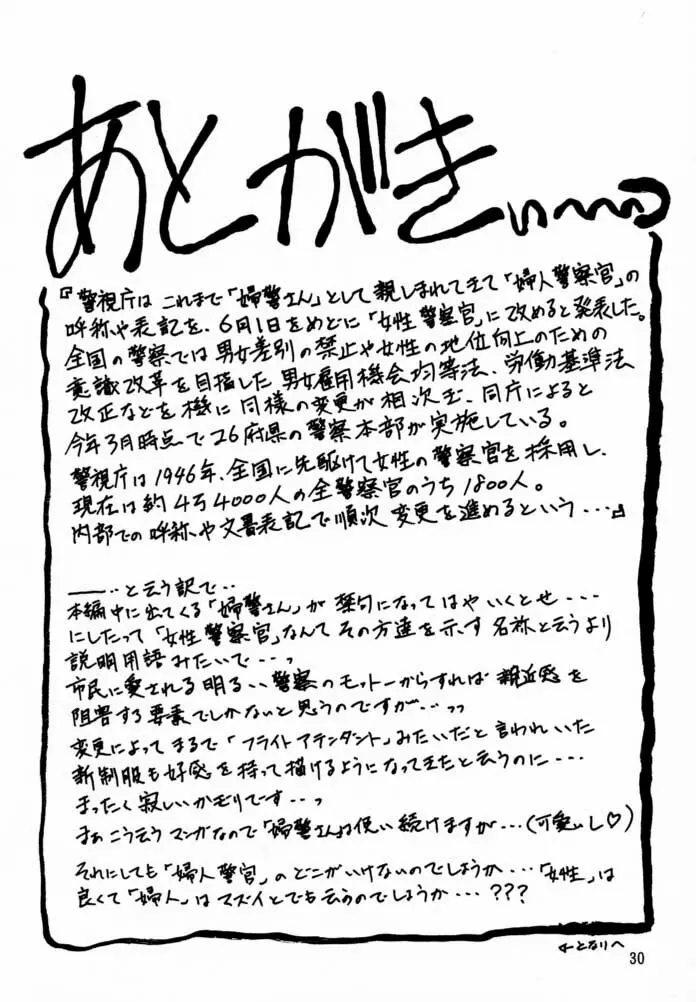 あとがきぃ〜〜ぃっ
『警視庁は これまで「婦警さん」として親しまれてきて「婦人警察官」の
呼称や表記を、6月1日をめどに「女性警察官」に改めると発表した。
全国の警察では男女差別の禁止や女性の地位向上のための
意識改革を目指した男女雇用機会均等法、労働基準法
改正などを機に同様の変更が相次ぎ、同庁によると
今年3月時点で26府県の警察本部が実施している。
警視庁は1946年、全国に先駆けて女性の警察官を採用し、
現在は約4万4000人の全警察官のうち1800人。
内部での呼称や文書表記で順次変更を進めるという・・・』
―――‥と云う訳で‥
本編中に出てくる「婦警さん」が禁句になってはやいくとせ・・・
にしたって「女性警察官」なんてその方達を示す名称と云うより
説明用語みたいで・・・っ
市民に愛される明るい警察のモットーからすれば親近感を
阻害する要素でしかないと思うのですが・・・っっ
変更によってまるで「フライトアテンダント」みたいだと言われいた
新制服も好感を持って描けるようになってきたと云うのに・・・
まったく寂しいかぎりです・・・っ
まぁこう云うマンガなので「婦警さん」は使い続けますが・・・(可愛いし♡)
それにしても「婦人警官」のどこがいけないのでしょうか・・・「女性」は
良くて「婦人」はマズイとでも云うのでしょうか・・・???
となりへ
30